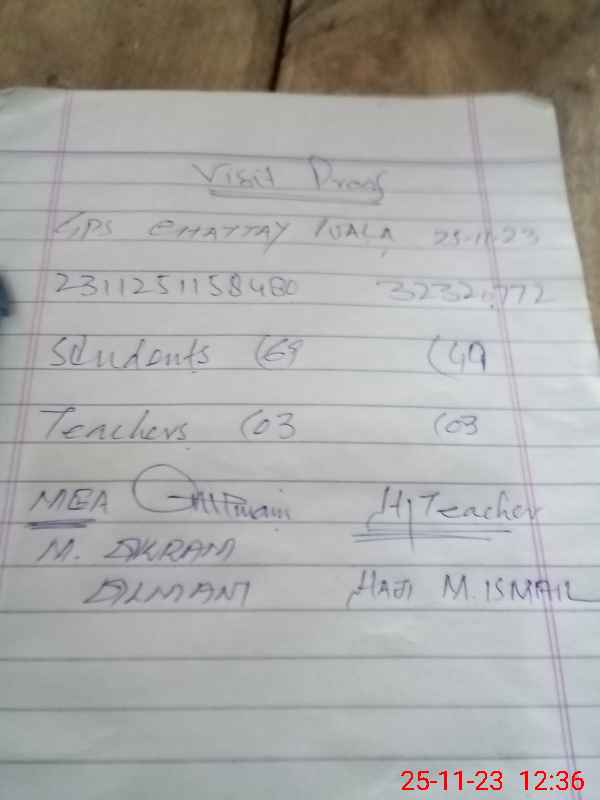 Visit Proof
GPS CHATTAY WALA 25-11-23
2311251158480 32320772
Students (69 (49
Teachers (03 (03
MEA H/Teacher
M. AKRAM
ALMANI HAJI M. ISMAIL
25-11-23 12:36